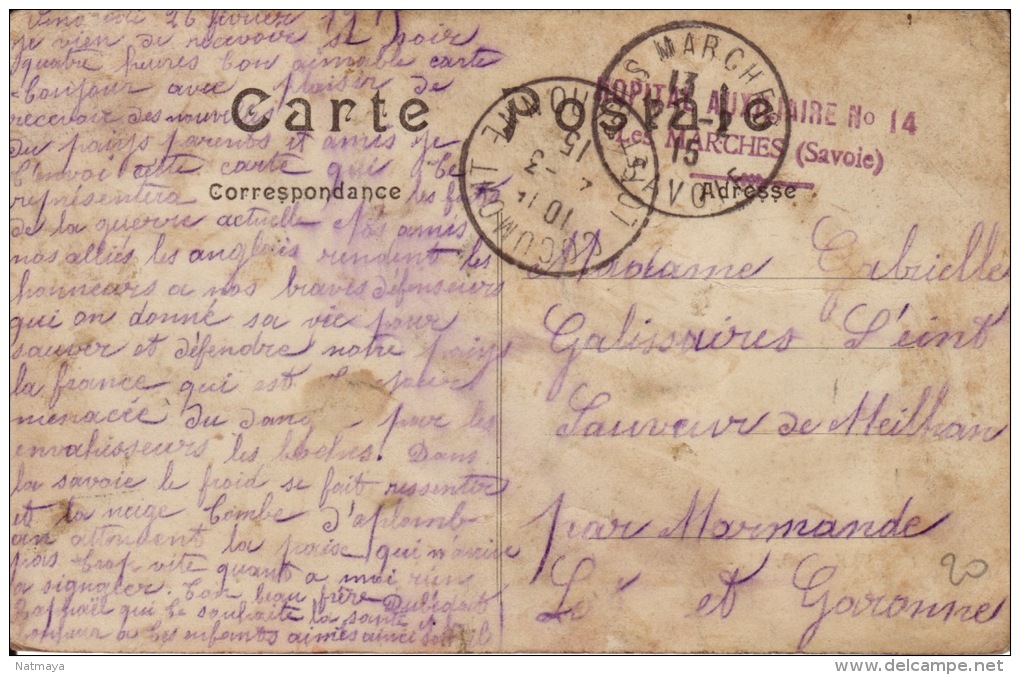 Vendredi 26 février 1915
je vien de recevoir se soir
quatre heures ton aimable carte
bonjour avec plaisir de
recevoir des nouvelles
du paiys parents et amis je
t'envoi cette carte qui te
représentera les faits
de la guerre actuelle Nos amis
nos alliés les anglais rendent les
honneurs a nos braves défenseurs
qui on donné sa vie pour
sauver et défendre notre paiys
la france qui est
menacée du dang par les
envahisseurs les boches. Dans
la savoie le froid se fait ressentir
et la neige tombe d'aplomb
on attendent la paise qui n'arrive
pas trop vite quant a moi rien
a signaler. Ton beau frère Dubédat
Raphaël qui te souhaite la santé
bonjour a tes enfants
Carte Postale
Correspondance
Adresse
LES MARCHES
13
15
SAVOIE
HOPITAL AUXILIAIRE No 14
Les MARCHES (Savoie)
15
3
10
Madame Gabrielle
Galissaires S'eint
Sauveur de Meilhan
par Marmande
Lot et Garonne
20
Natmaya
delcampe.net